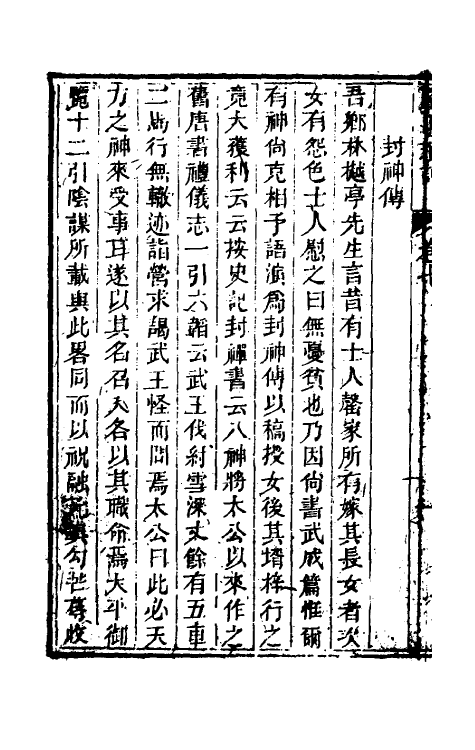 封神傳
吾鄉林樾亭先生言昔有士人罄家所有嫁其長女者次
女有怨色士人慰之曰無憂貧也乃因尙書武成篇惟爾
有神尙克相予語演爲封神傳以稿授女後其壻梓行之
竟大獲利云云按史記封禪書云八神將太公以來作之
舊唐書禮儀志一引六韜云武王伐紂雪深丈餘有五車
二馬行無轍迹詣營求謁武王怪而問焉太公曰此必天
方之神來受事耳遂以其名召入各以其職命焉太平御
覽十二引陰謀所載與此畧同而以祝融 勾芒蓐收